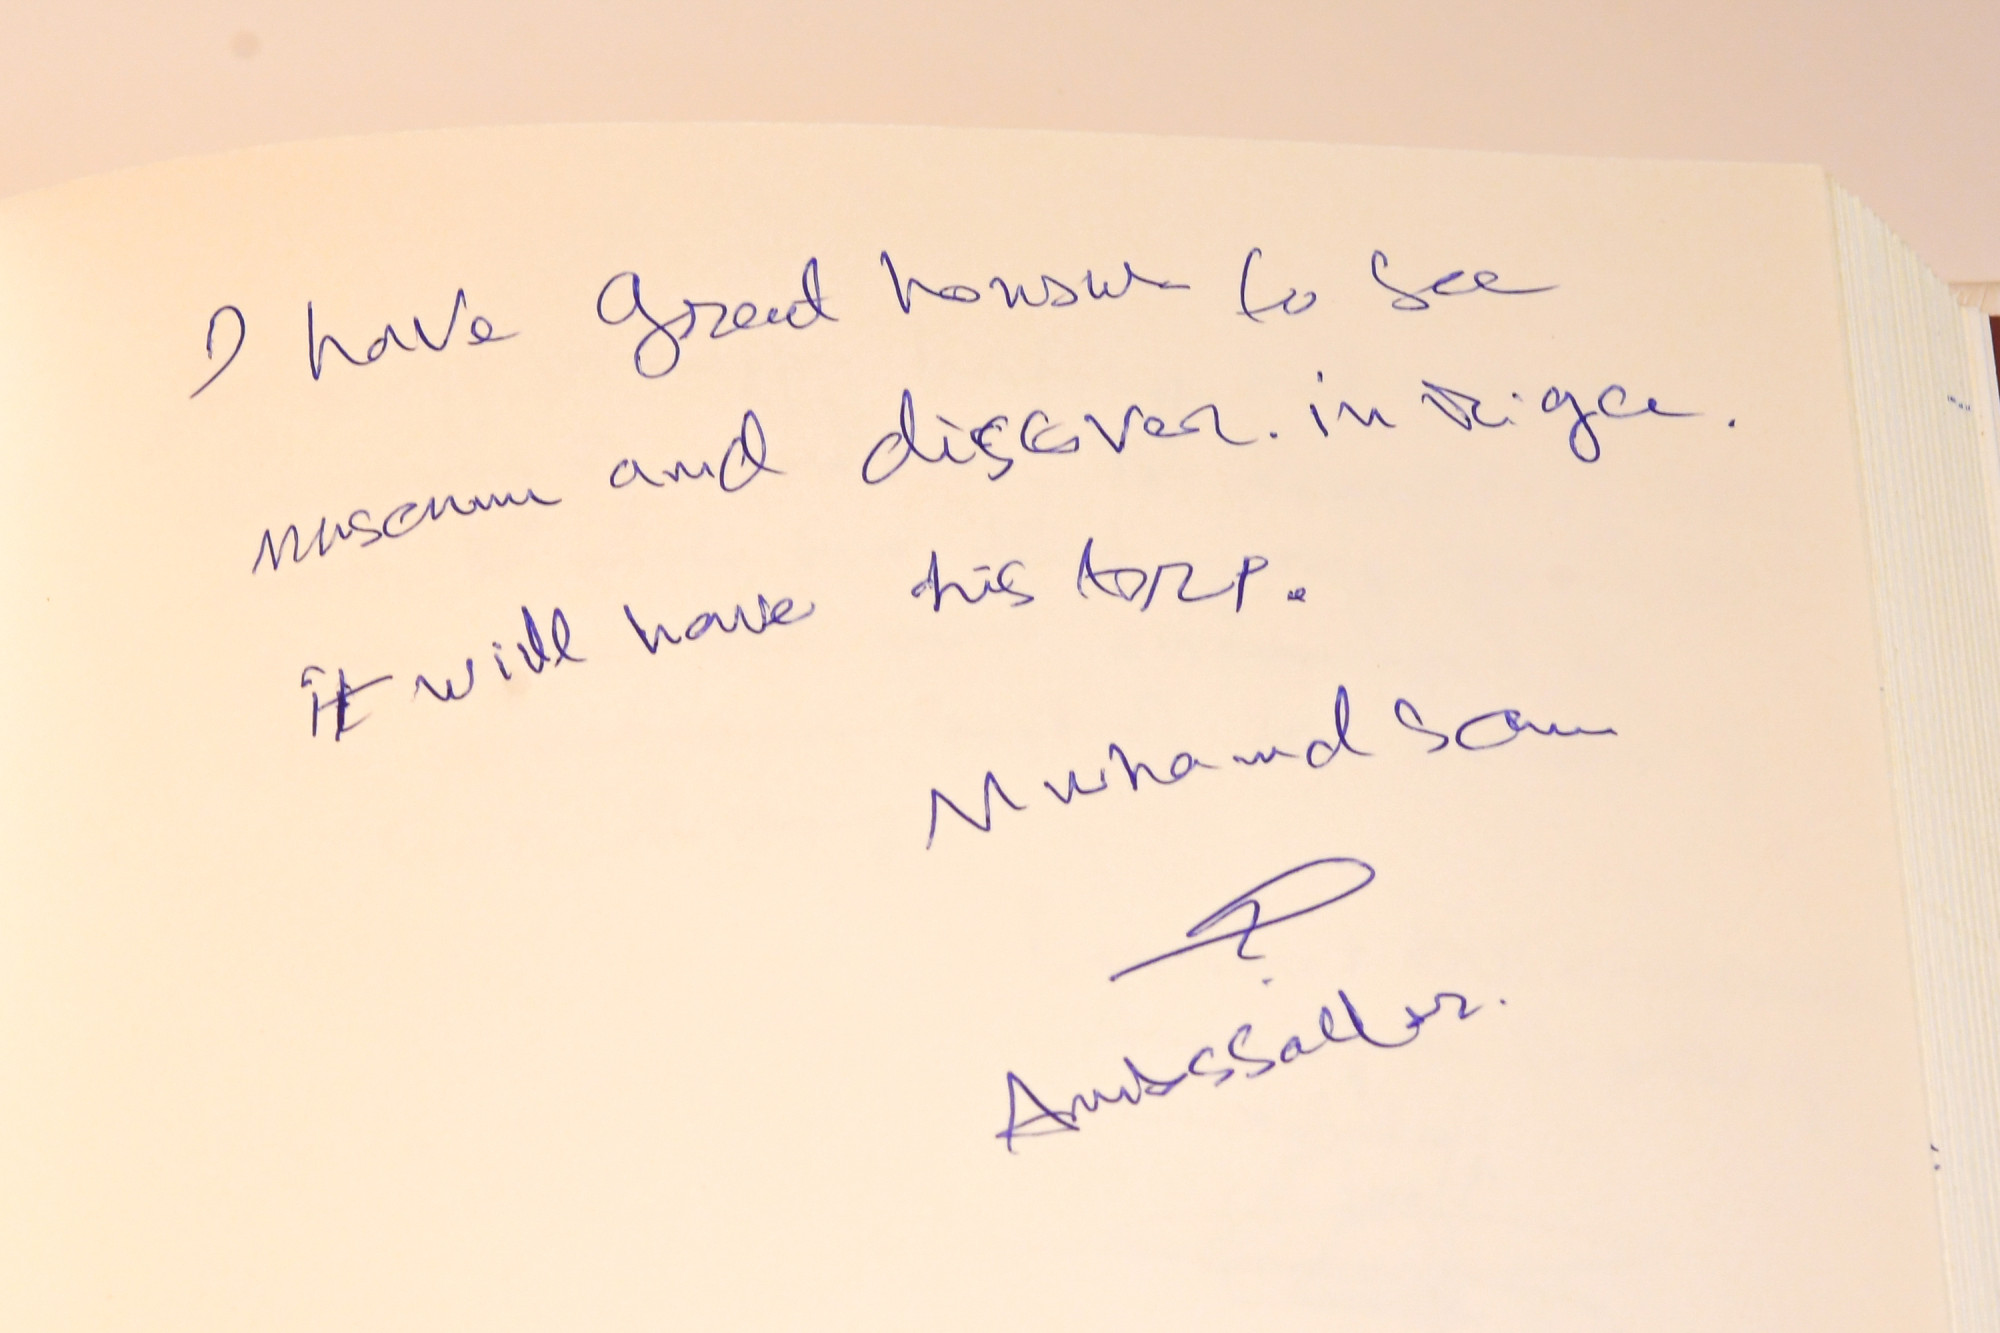 I have great honour to see
museum and discover. in Riga.
it will have history.
Muhamad Sam
Ambassador.